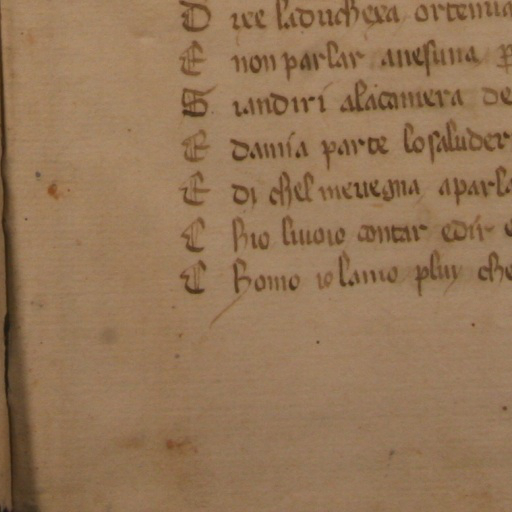 D ixe laduchexa ortenua
E non parlar anesuna p
S iandiri alacamera de
E damia parte lo saluder
E di chel meuegna aparla
C hio liuoio contar edir
C homo io lamo pluy che